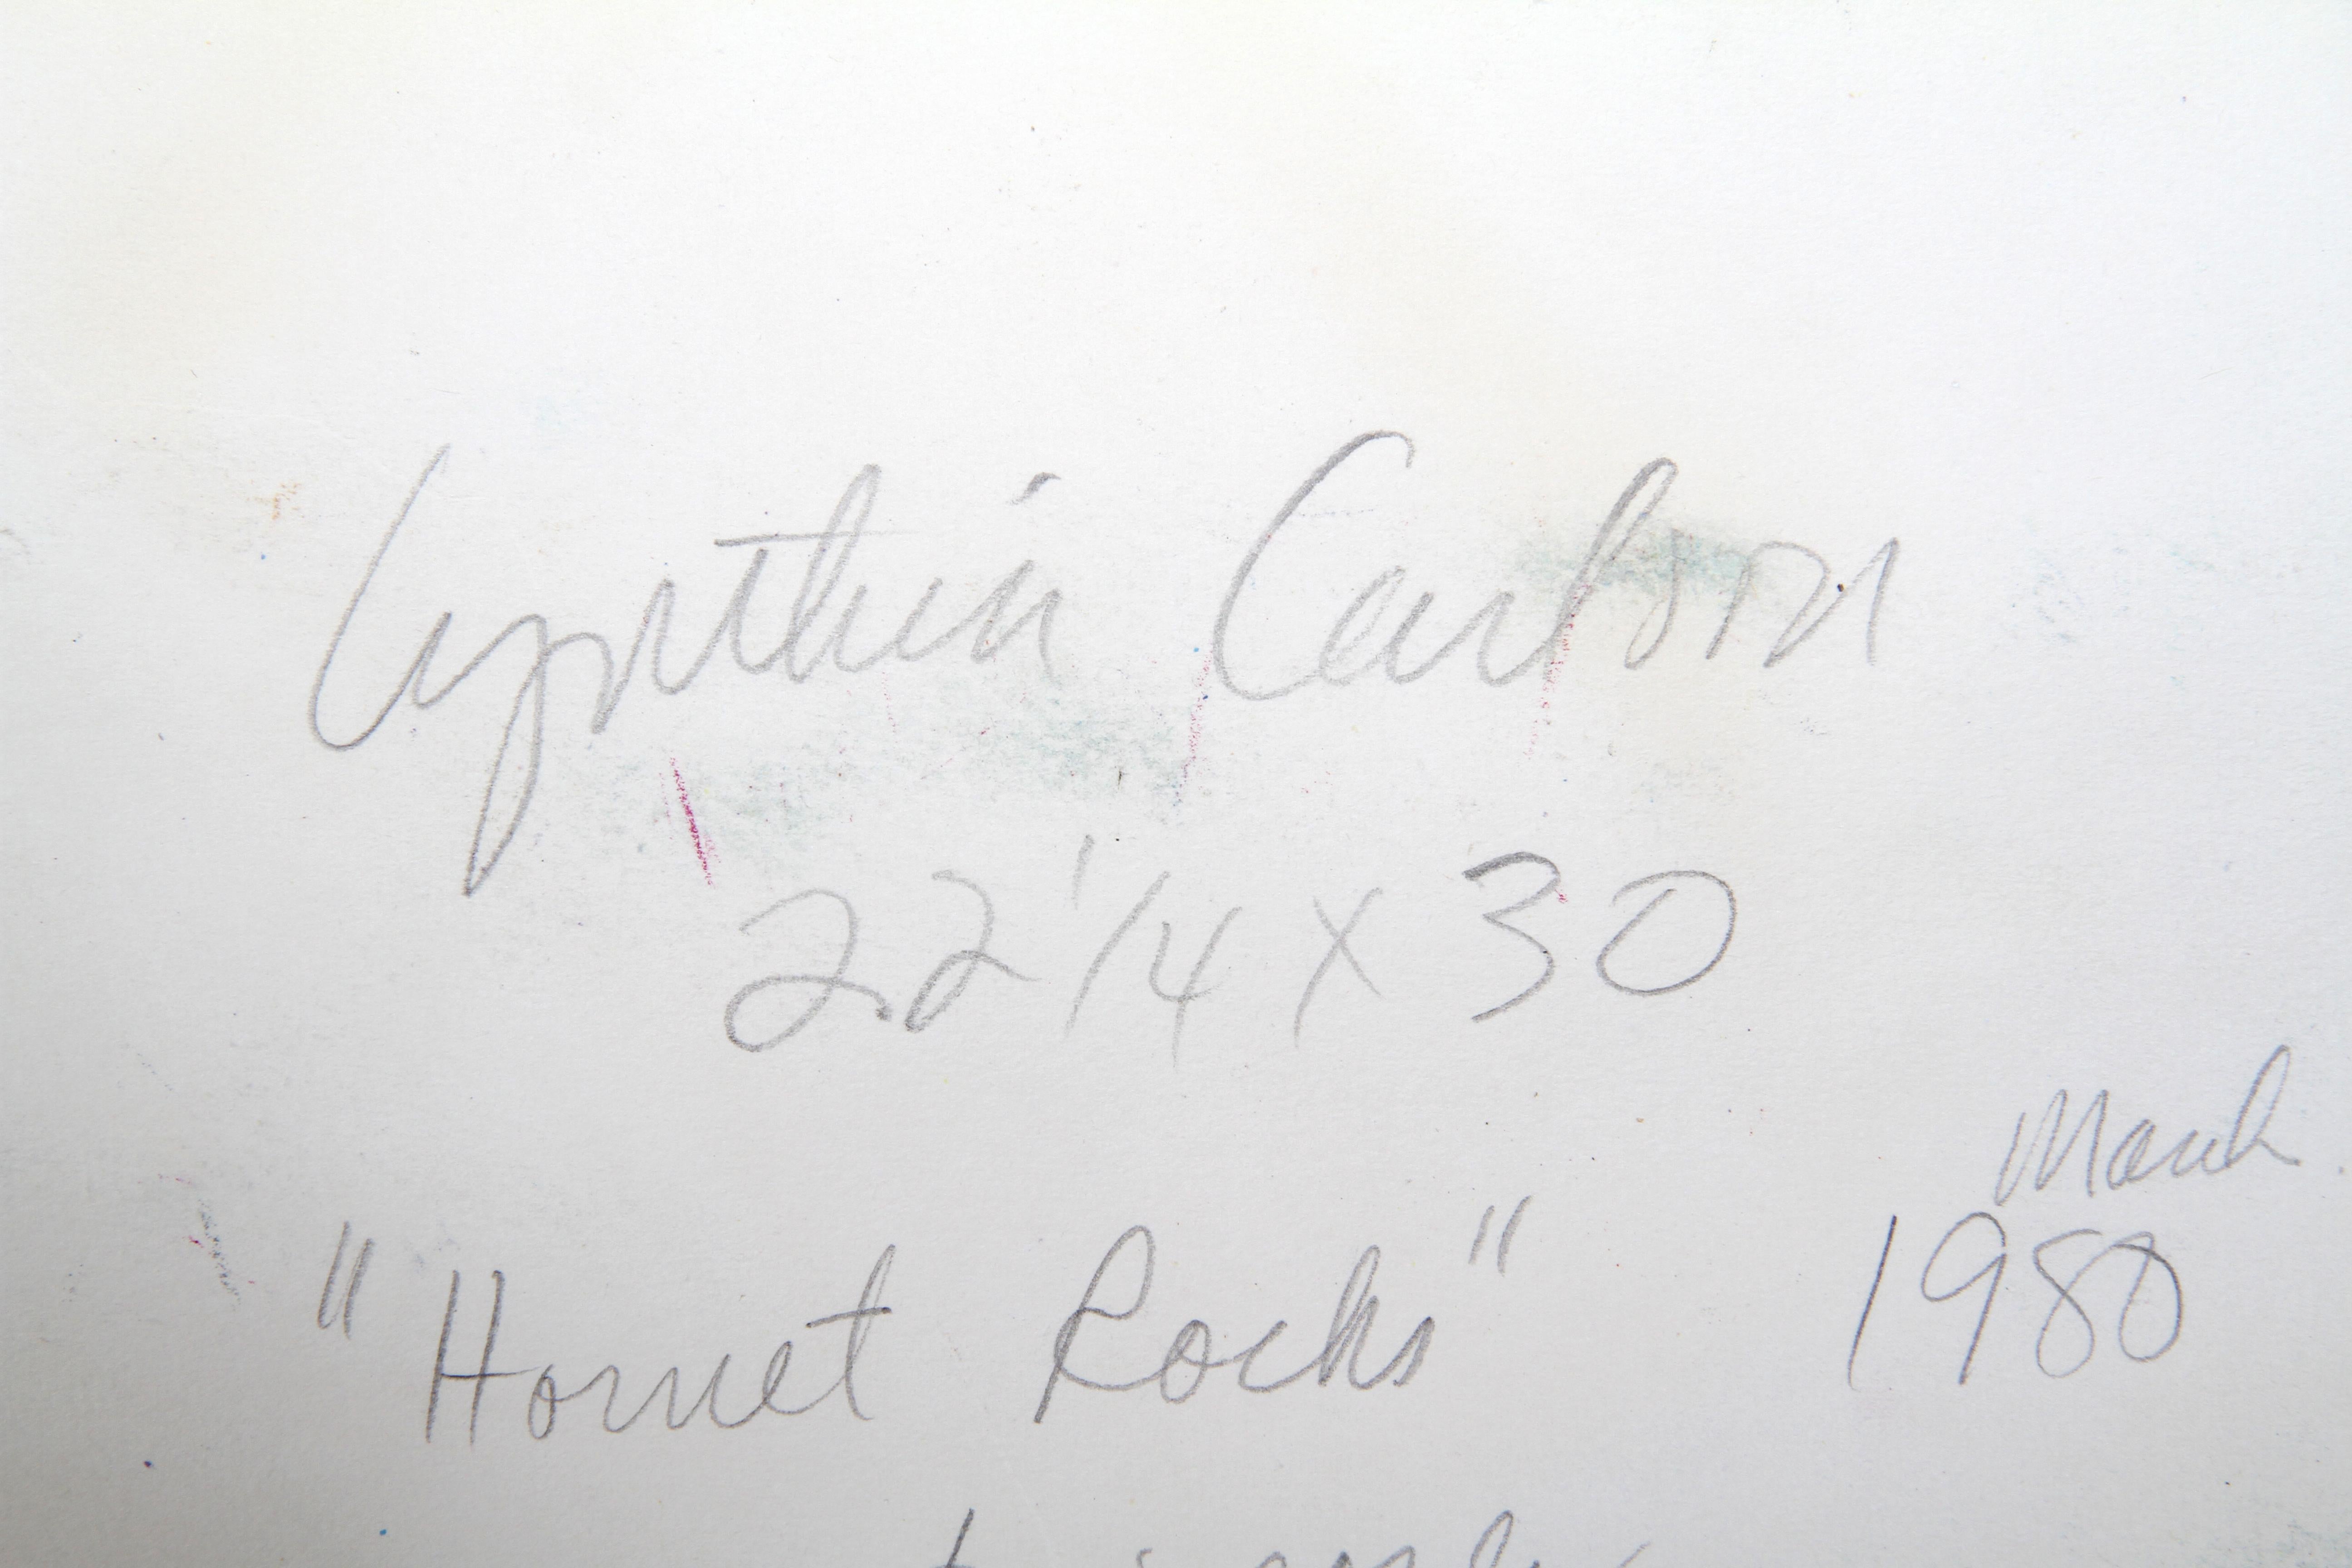 Cynthia Carlson
22 1/4 X 30
March
"Hornet Rocks" 1980